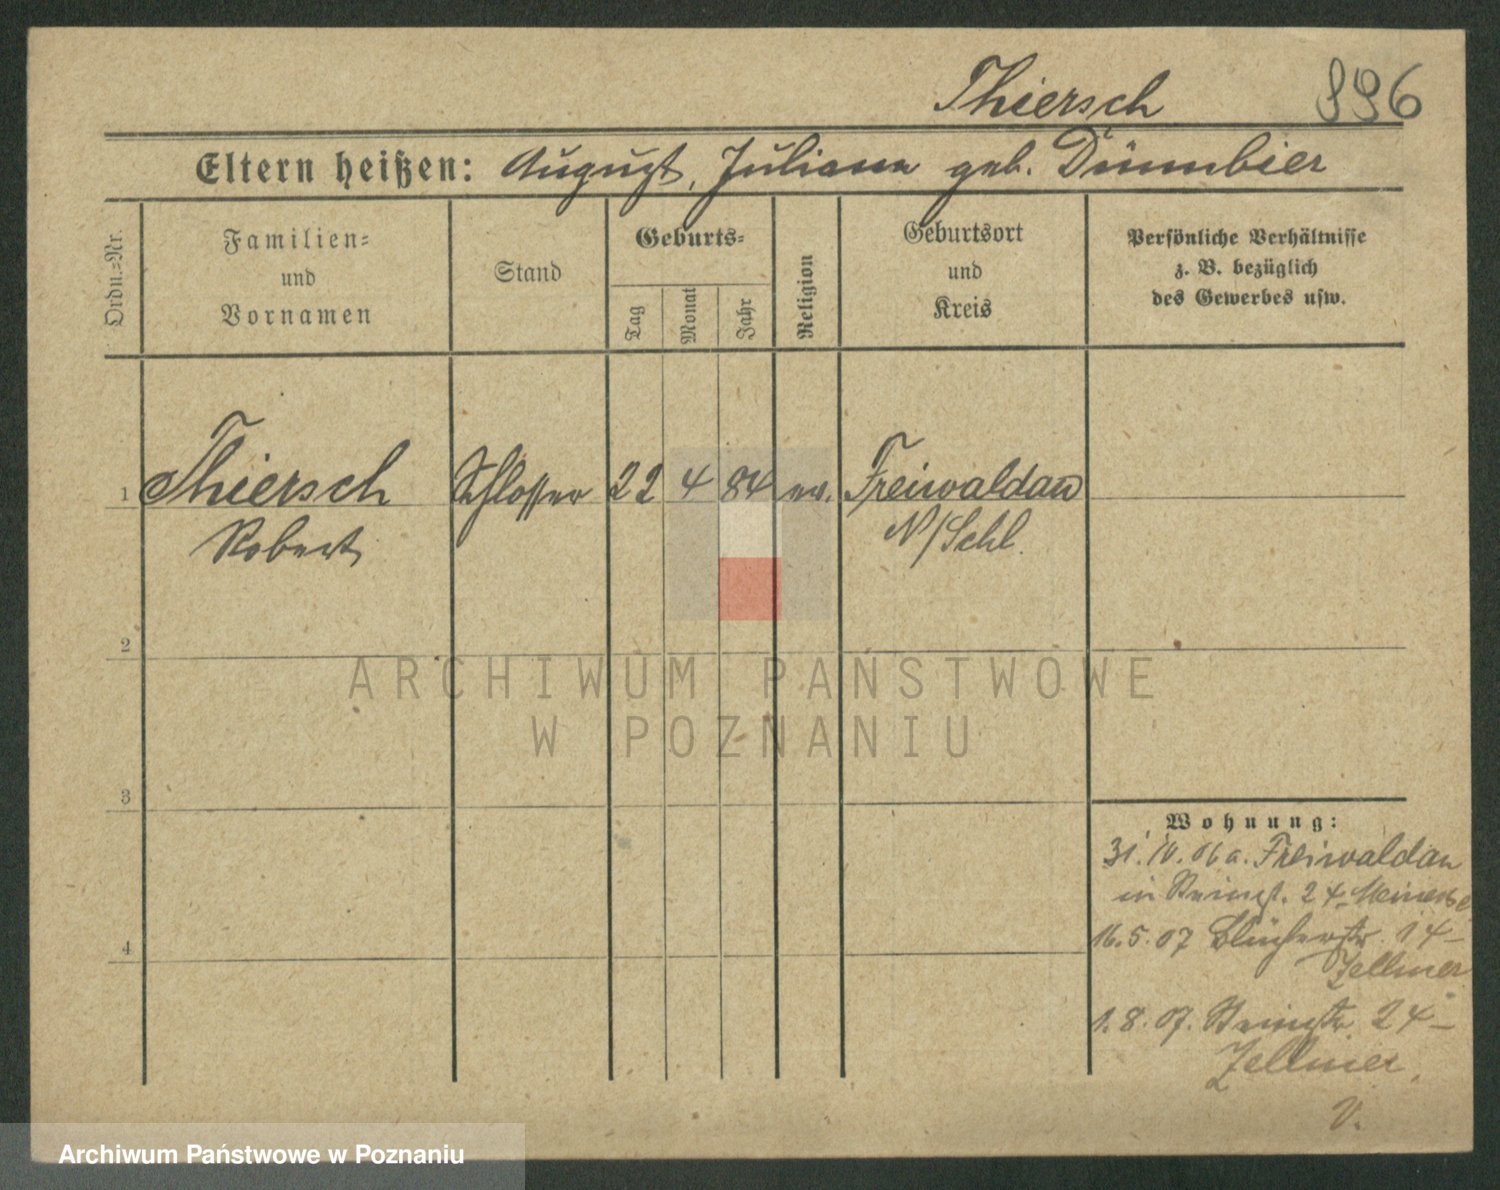 Thiersch 996
Eltern heißen: August, Juliane geb. Dümmbier
Ordn.=Nr.
Familien=
und
Vornamen
Stand
Geburts=
Tag
Monat
Jahr
Religion
Geburtsort
und
Kreis
Persönliche Verhältnisse
z. B. bezüglich
des Gewerbes usw.
1 Thiersch Schlosser 22 4 84 ev. Freiwaldau
Robert N/Schl.
2
ARCHIWUM PAŃSTWOWE
W POZNANIU
3
Wohnung:
31. 06 a. Freiwaldau
in Steinst. 24
16.5.07 Blücherstr. 14-
Zellmer
4
1.8.07. Steinstr. 24-
Zellmer.
V.
Archiwum Państwowe w Poznaniu